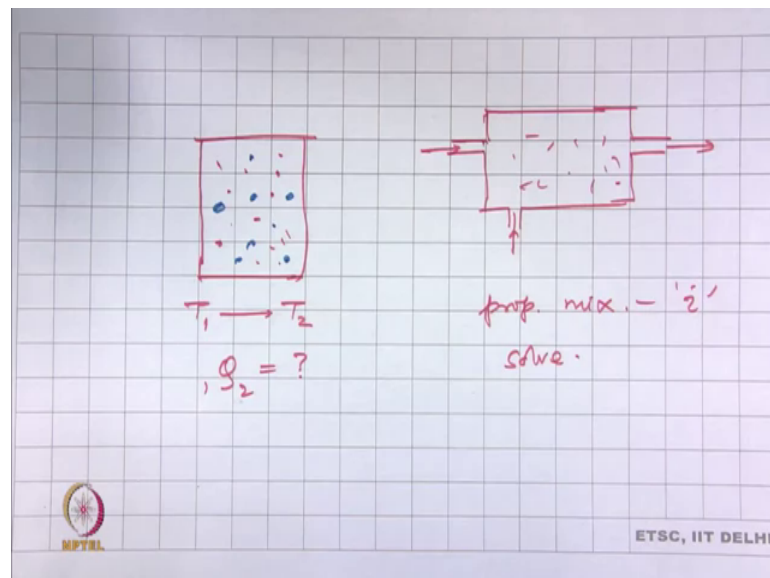 T₁ → T₂
, Q₂ = ?
prop. mix. - 'i'
solve.
NPTEL
ETSC, IIT DELHI